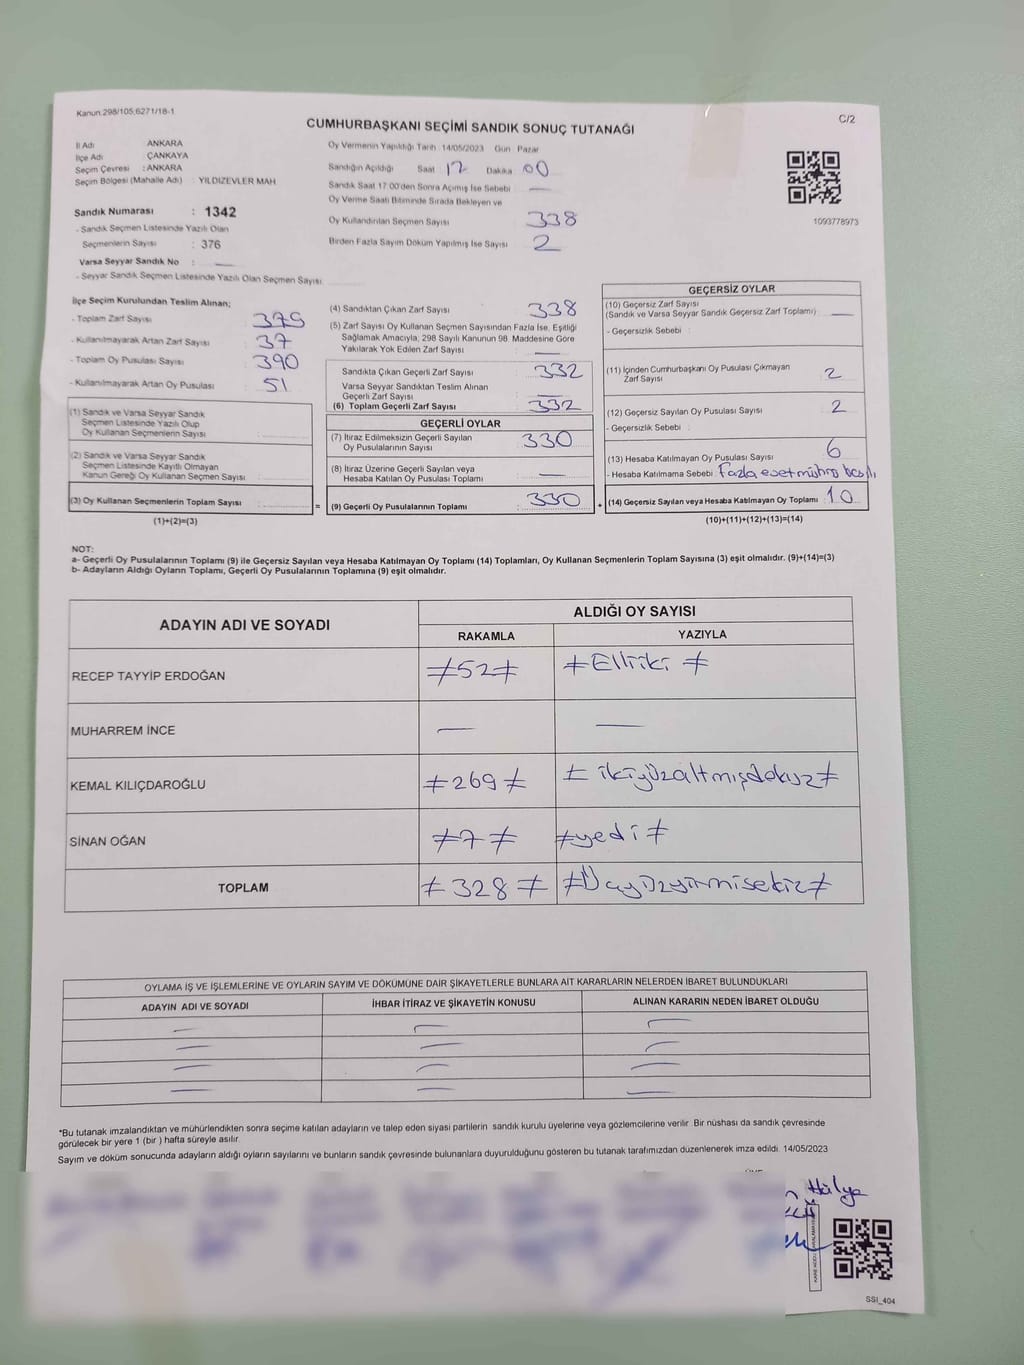 Kanun:298/105;6271/18-1
C/2
CUMHURBAŞKANI SEÇİMİ SANDIK SONUÇ TUTANAĞI
İl Adı ANKARA
İlçe Adı ÇANKAYA
Seçim Çevresi : ANKARA
Seçim Bölgesi (Mahalle Adı) : YILDIZEVLER MAH
Sandık Numarası : 1342
- Sandık Seçmen Listesinde Yazılı Olan
Seçmenlerin Sayısı : 376
Varsa Seyyar Sandık No : —
- Seyyar Sandık Seçmen Listesinde Yazılı Olan Seçmen Sayısı:
Oy Vermenin Yapıldığı Tarih 14/05/2023 Gün Pazar
Sandığın Açıldığı Saat 17 Dakika 00
Sandık Saat 17:00'den Sonra Açılmış İse Sebebi —
Oy Verme Saati Bitiminde Sırada Bekleyen ve
Oy Kullandırılan Seçmen Sayısı 338
Birden Fazla Sayım Döküm Yapılmış İse Sayısı 2
1093778973
İlçe Seçim Kurulundan Teslim Alınan;
- Toplam Zarf Sayısı 375
- Kullanılmayarak Artan Zarf Sayısı 37
- Toplam Oy Pusulası Sayısı 390
- Kullanılmayarak Artan Oy Pusulası 51
(1) Sandık ve Varsa Seyyar Sandık
Seçmen Listesinde Yazılı Olup
Oy Kullanan Seçmenlerin Sayısı :
(2) Sandık ve Varsa Seyyar Sandık
Seçmen Listesinde Kayıtlı Olmayan
Kanun Gereği Oy Kullanan Seçmen Sayısı :
(3) Oy Kullanan Seçmenlerin Toplam Sayısı :
(1)+(2)=(3)
(4) Sandıktan Çıkan Zarf Sayısı 338
(5) Zarf Sayısı Oy Kullanan Seçmen Sayısından Fazla İse, Eşitliği
Sağlamak Amacıyla; 298 Sayılı Kanunun 98. Maddesine Göre
Yakılarak Yok Edilen Zarf Sayısı —
Sandıkta Çıkan Geçerli Zarf Sayısı 332
Varsa Seyyar Sandıktan Teslim Alınan
Geçerli Zarf Sayısı —
(6) Toplam Geçerli Zarf Sayısı 332
GEÇERLİ OYLAR
(7) İtiraz Edilmeksizin Geçerli Sayılan
Oy Pusulalarının Sayısı 330
(8) İtiraz Üzerine Geçerli Sayılan veya
Hesaba Katılan Oy Pusulası Toplamı —
= (9) Geçerli Oy Pusulalarının Toplamı : 330 +
GEÇERSİZ OYLAR
(10) Geçersiz Zarf Sayısı
(Sandık ve Varsa Seyyar Sandık Geçersiz Zarf Toplamı) —
- Geçersizlik Sebebi :
(11) İçinden Cumhurbaşkanı Oy Pusulası Çıkmayan
Zarf Sayısı 2
(12) Geçersiz Sayılan Oy Pusulası Sayısı 2
- Geçersizlik Sebebi :
(13) Hesaba Katılmayan Oy Pusulası Sayısı 6
- Hesaba Katılmama Sebebi : Fazla evet mührü
(14) Geçersiz Sayılan veya Hesaba Katılmayan Oy Toplamı : 10
(10)+(11)+(12)+(13)=(14)
NOT:
a- Geçerli Oy Pusulalarının Toplamı (9) ile Geçersiz Sayılan veya Hesaba Katılmayan Oy Toplamı (14) Toplamları, Oy Kullanan Seçmenlerin Toplam Sayısına (3) eşit olmalıdır. (9)+(14)=(3)
b- Adayların Aldığı Oyların Toplamı, Geçerli Oy Pusulalarının Toplamına (9) eşit olmalıdır.
ADAYIN ADI VE SOYADI
ALDIĞI OY SAYISI
RAKAMLA YAZIYLA
RECEP TAYYİP ERDOĞAN ≠52≠ ≠Elliiki≠
MUHARREM İNCE — —
KEMAL KILIÇDAROĞLU ≠269≠ ≠ikiyüzaltmışdokuz≠
SİNAN OĞAN ≠7≠ ≠yedi≠
TOPLAM ≠328≠ ≠Üçyüzyirmisekiz≠
OYLAMA İŞ VE İŞLEMLERİNE VE OYLARIN SAYIM VE DÖKÜMÜNE DAİR ŞİKAYETLERLE BUNLARA AİT KARARLARIN NELERDEN İBARET BULUNDUKLARI
ADAYIN ADI VE SOYADI İHBAR İTİRAZ VE ŞİKAYETİN KONUSU ALINAN KARARIN NEDEN İBARET OLDUĞU
— — —
— — —
— — —
— — —
*Bu tutanak imzalandıktan ve mühürlendikten sonra seçime katılan adayların ve talep eden siyasi partilerin sandık kurulu üyelerine veya gözlemcilerine verilir. Bir nüshası da sandık çevresinde
görülecek bir yere 1 (bir ) hafta süreyle asılır.
Sayım ve döküm sonucunda adayların aldığı oyların sayılarını ve bunların sandık çevresinde bulunanlara duyurulduğunu gösteren bu tutanak tarafımızdan düzenlenerek imza edildi. 14/05/2023
Hülya
SSI_404